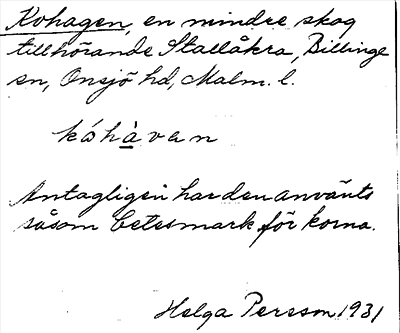 Kohagen, en mindre skog
tillhörande Stallåkra, Billinge
sn, Onsjö hd, Malm. l.
kóhàvan
Antagligen har den använts
såsom betesmark för korna.
Helga Persson 1931